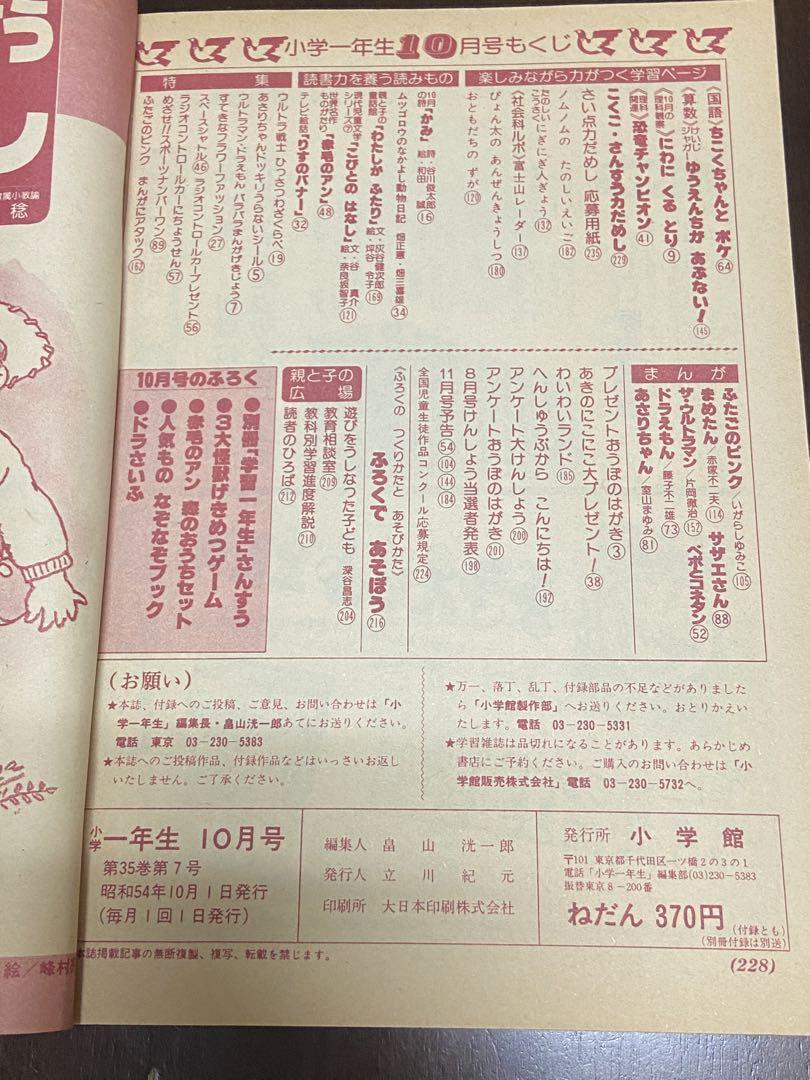 小学一年生10月号もくじ
楽しみながら力がつく学習ページ
〈国語〉ちこくちゃんと ポケ64
〈算数〉けいじジャガー ゆうえんちが あぶない!145
10月の理科観察 にわに くる とり9
理科関連 恐竜チャンピオン41
こくご・さんすう力だめし229
さい点力だめし 応募用紙235
ノムノムの たのしいえいご182
たのしいこうさく にぎにぎ人ぎょう132
〈社会科ルポ〉富士山レーダー137
ぴょん太の あんぜんきょうしつ180
おともだちの ずが120
読書力を養う読みもの
10月の詩「かみ」 詩・谷川俊太郎 絵・和田 誠16
ムツゴロウのなかよし動物日記 畑正憲・畑三喜雄34
親と子の童話館「わたしが ふたり」文・灰谷健次郎 絵・坪谷令子169
現代児童文学シリーズ⑦「こびとの はなし」文・谷 真介 絵・奈良坂智子121
世界名作ものがたり「赤毛のアン」48
テレビ絵話「りすのバナー」32
特集
ウルトラ戦士 ひっさつわざくらべ19
あさりちゃんドッキリうらないシール5
ウルトラマン・ドラえもん パラパラまんがげきじょう7
すてきなフラワーファッション27
スペースシャトル46 ラジオコントロールカープレゼント56
ラジオコントロールカーにちょうせん57
めざせ!!スポーツナンバーワン89
ふたごのピンク まんがにアタック162
まんが
ふたごのピンク/いがらしゆみこ105
まめたん/赤塚不二夫114 サザエさん88
ザ・ウルトラマン/片岡徹治152 ペポとコネタン52
ドラえもん/藤子不二雄73
あさりちゃん/室山まゆみ81
プレゼントおうぼのはがき3
あきのにこにこ大プレゼント!38
わいわいランド185
へんしゅうぶから こんにちは!192
アンケート大けんしょう200
アンケートおうぼのはがき201
8月号けんしょう当選者発表198
11月号予告54 104 144 184
全国児童生徒作品コンクール応募規定224
〈ふろくの つくりかたと あそびかた〉
ふろくで あそぼう216
親と子の広場
遊びをうしなった子ども 深谷昌志204
教育相談室209
教科別学習進度解説210
読者のひろば212
10月号のふろく
●別冊「学習一年生」さんすう
●3大怪獣げきめつゲーム
●赤毛のアン 森のおうちセット
●人気もの なぞなぞブック
●ドラさいふ
(お願い)
★本誌、付録へのご投稿、ご意見、お問い合わせは「小
学一年生」編集長・畠山洸一郎あてにお送りください。
電話 東京 03-230-5383
★本誌へのご投稿作品、付録作品などはいっさいお返し
いたしません。ご了承ください。
★万一、落丁、乱丁、付録部品の不足などがありました
ら「小学館製作部」へお送りください。おとりかえい
たします。電話 03-230-5331
★学習雑誌は品切れになることがあります。あらかじめ
書店にご予約ください。ご購入のお問い合わせは「小
学館販売株式会社」電話 03-230-5732へ。
小学一年生 10月号
第35巻第7号
昭和54年10月1日発行
(毎月1回1日発行)
編集人 畠山洸一郎
発行人 立川紀元
印刷所 大日本印刷株式会社
発行所 小学館
〒101 東京都千代田区一ツ橋2の3の1
電話「小学一年生」編集部(03)230-5383
振替東京8-200番
ねだん 370円(付録とも)
(別冊付録は別送)
本誌掲載記事の無断複製、複写、転載を禁じます。
(228)
絵/峰村